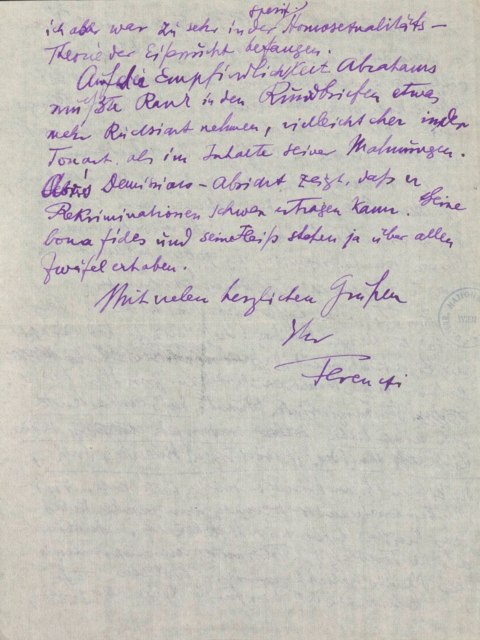 spezif.
ich aber war zu sehr in der Homosexualitäts-
Theorie der Eifersucht befangen.
Auf die Empfindlichkeit Abrahams
müsste Rank in den Rundbriefen etwas
mehr Rücksicht nehmen, vielleicht eher in der
Tonart als im Inhalte seiner Mahnungen.
Demissions-Absicht zeigt, daß er
Rekriminationen schwer ertragen kann. Seine
bona fides und sein Fleiß stehen ja über allen
Zweifel erhaben.
Mit vielen herzlichen Grüßen
Ihr
Ferenczi